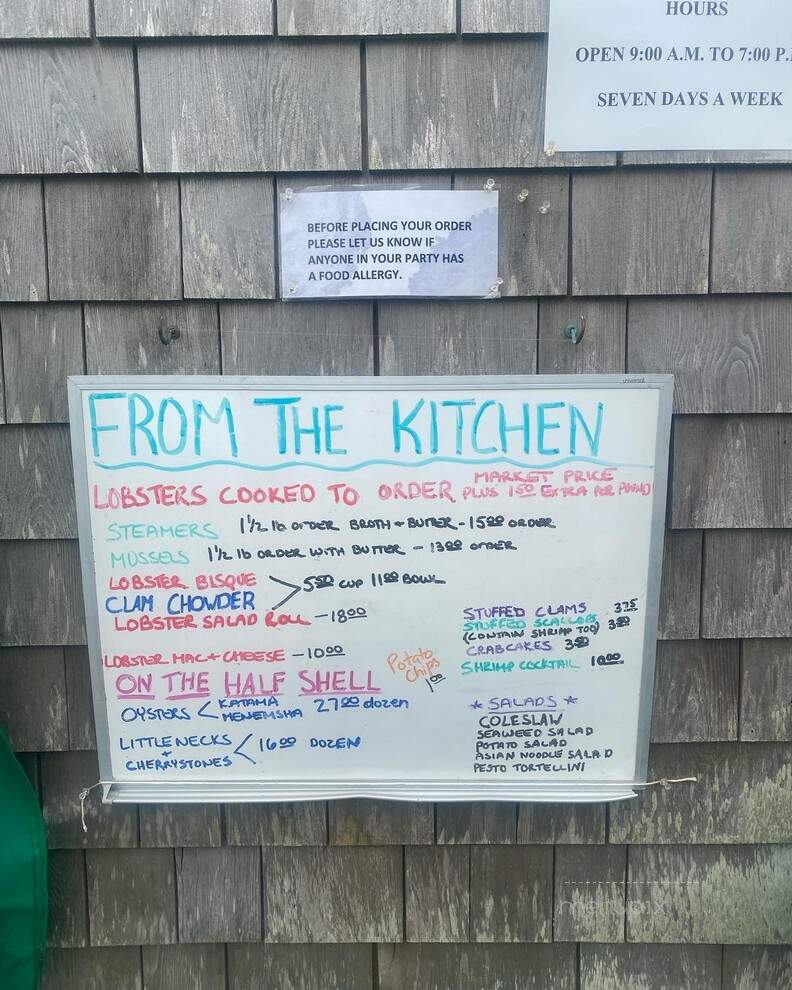 HOURS
OPEN 9:00 A.M. TO 7:00 P.
SEVEN DAYS A WEEK
BEFORE PLACING YOUR ORDER
PLEASE LET US KNOW IF
ANYONE IN YOUR PARTY HAS
A FOOD ALLERGY.
universal
FROM THE KITCHEN
LOBSTERS COOKED TO ORDER MARKET PRICE
PLUS 1.50 EXTRA PER POUND
STEAMERS 1 1/2 lb ORDER BROTH + BUTTER - 15.00 ORDER
MUSSELS 1 1/2 lb ORDER WITH BUTTER - 13.00 ORDER
LOBSTER BISQUE
CLAM CHOWDER > 5.50 CUP 11.00 BOWL
LOBSTER SALAD ROLL - 18.00
LOBSTER MAC + CHEESE - 10.00
Potato
Chips
1.00
STUFFED CLAMS 3.75
STUFFED SCALLOPS
(CONTAIN SHRIMP TOO)
CRABCAKES
SHRIMP COCKTAIL 10.00
ON THE HALF SHELL
OYSTERS < KATAMA
MENEMSHA 27.00 dozen
LITTLENECKS
+
CHERRYSTONES < 16.00 DOZEN
* SALADS *
COLESLAW
SEAWEED SALAD
POTATO SALAD
ASIAN NOODLE SALAD
PESTO TORTELLINI
menupix